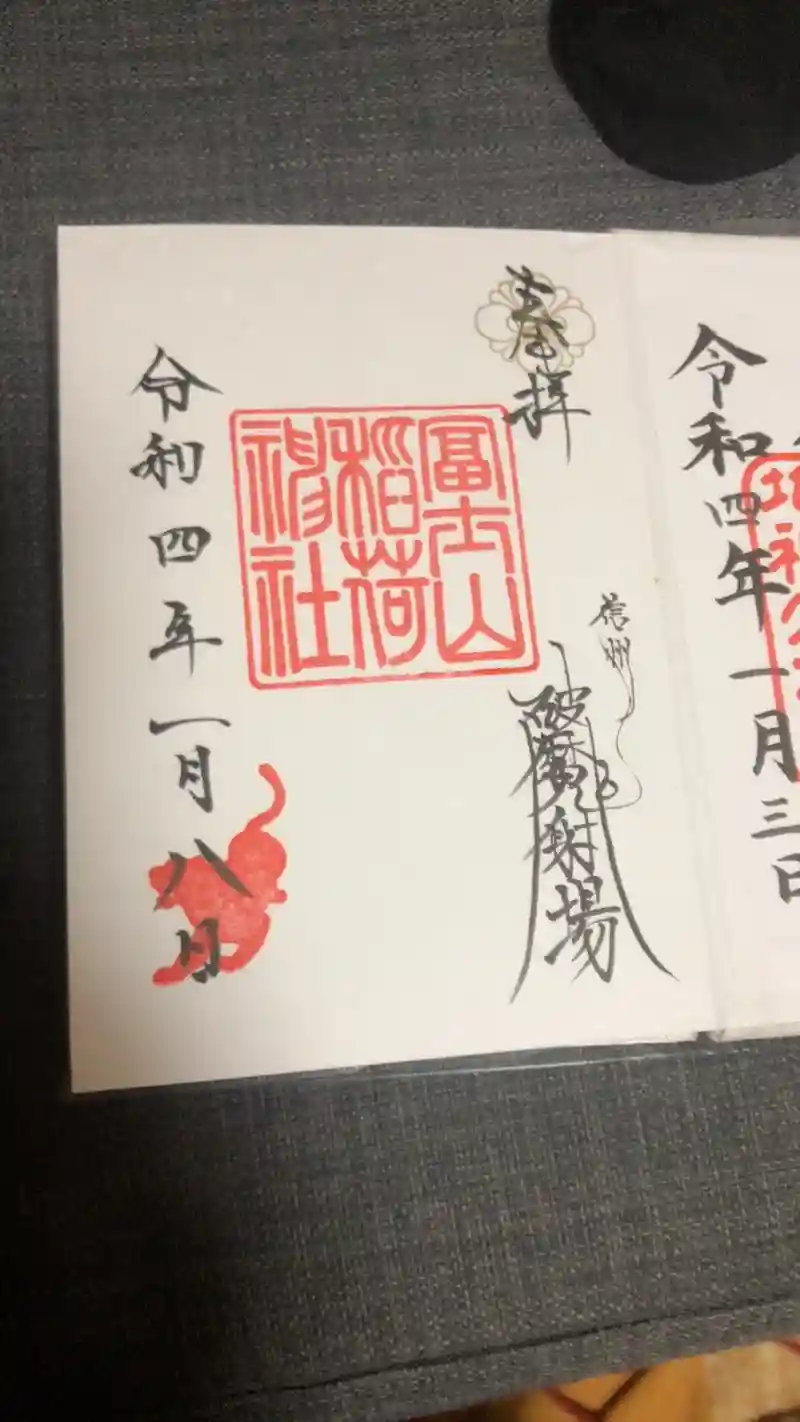 令和四年一月三日
奉拝
信州
破魔射場
冨士山
稲荷
神社
令和四年一月八日